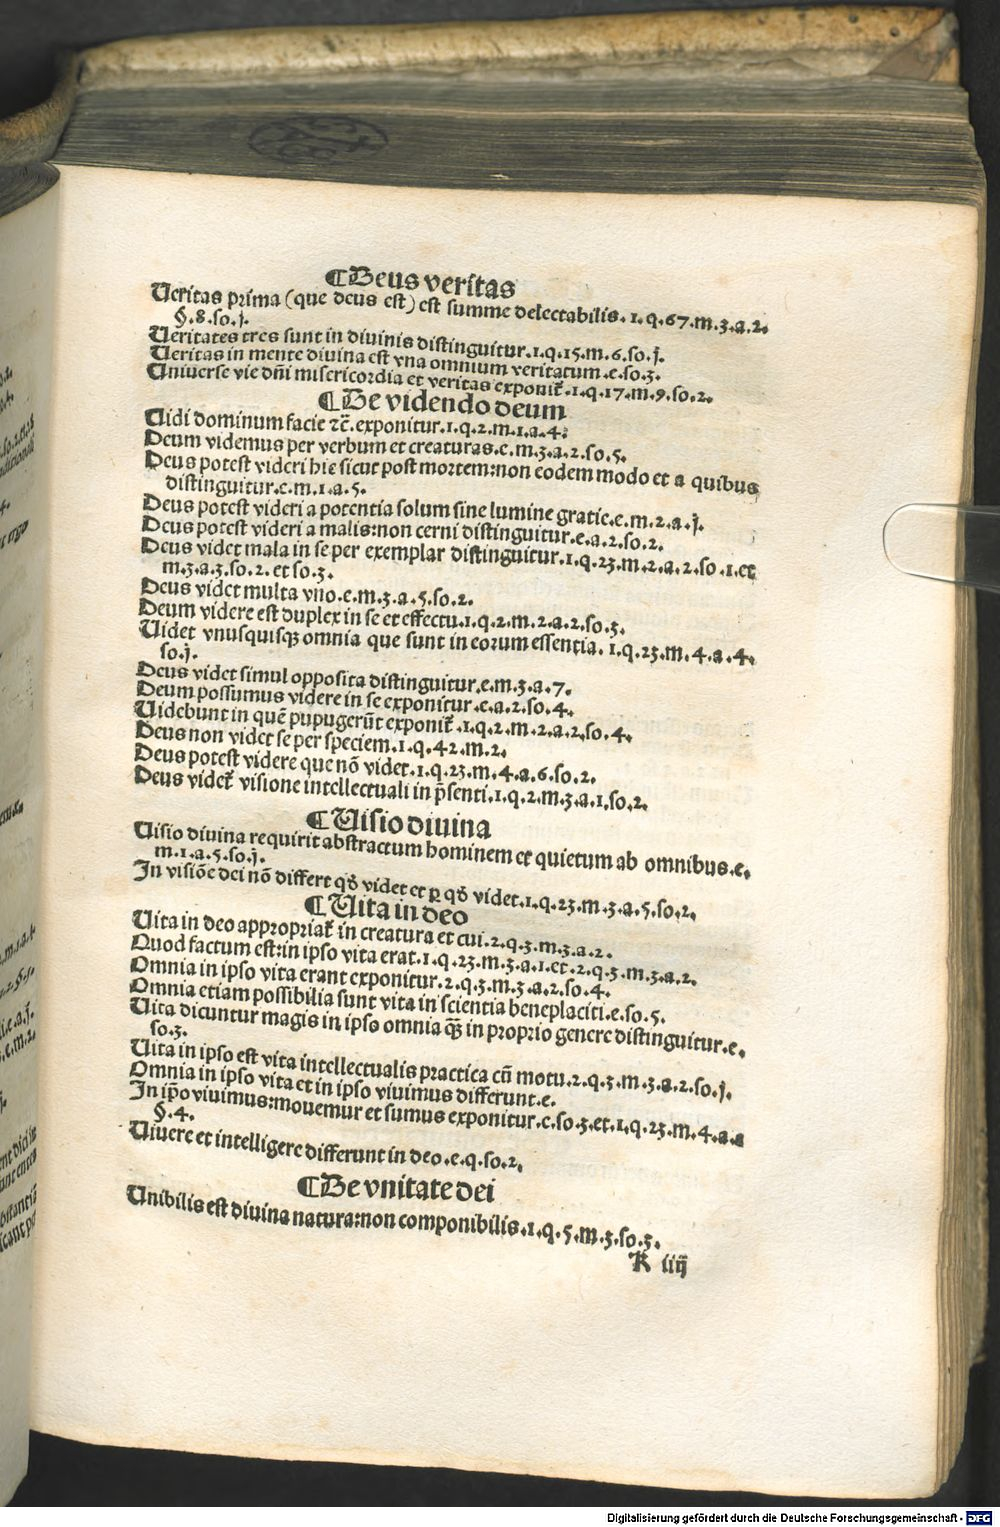 ¶Deus veritas
Veritas prima (que deus est) est summe delectabilis.1.q.67.m.3.a.2.
§.8.so.j.
Veritates tres sunt in divinis distinguitur.1.q.15.m.6.so.j.
Veritas in mente divina est vna omnium veritatum.e.so.3.
Universe vie dñi misericordia et veritas exponit̃.1.q.17.m.9.so.2.
¶De videndo deum
Vidi dominum facie ⁊c̃.exponitur.1.q.2.m.1.a.4.
Deum videmus per verbum et creaturas.e.m.3.a.2.so.5.
Deus potest videri hic sicut post mortem:non eodem modo et a quibus
distinguitur.e.m.1.a.5.
Deus potest videri a potentia solum sine lumine gratie.e.m.2.a.j.
Deus potest videri a malis:non cerni distinguitur.e.a.2.so.2.
Deus videt mala in se per exemplar distinguitur.1.q.23.m.2.a.2.so.1.et
m.3.a.3.so.2.et so.3.
Deus videt multa vno.e.m.3.a.5.so.2.
Deum videre est duplex in se et effectu.1.q.2.m.2.a.2.so.3.
Videt vnusquisqꝫ omnia que sunt in eorum essentia.1.q.23.m.4.a.4.
so.j.
Deus videt simul opposita distinguitur.e.m.3.a.7.
Deum possumus videre in se exponitur.e.a.2.so.4.
Videbunt in quẽ pupugerũt exponit̃.1.q.2.m.2.a.2.so.4.
Deus non videt se per speciem.1.q.42.m.2.
Deus potest videre que nõ videt.1.q.23.m.4.a.6.so.2.
Deus videt̃ visione intellectuali in p̃senti.1.q.2.m.3.a.1.so.2.
¶Visio divina
Visio divina requirit abstractum hominem et quietum ab omnibus.e.
m.1.a.5.so.j.
In visiõe dei nõ differt qđ videt et ꝑ qđ videt.1.q.23.m.3.a.5.so.2.
¶Vita in deo
Vita in deo appropriat̃ in creatura et cui.2.q.3.m.3.a.2.
Quod factum est:in ipso vita erat.1.q.23.m.3.a.1.et.2.q.3.m.3.a.2.
Omnia in ipso vita erant exponitur.2.q.3.m.3.a.2.so.4.
Omnia etiam possibilia sunt vita in scientia beneplaciti.e.so.5.
Vita dicuntur magis in ipso omnia qꝫ̃ in proprio genere distinguitur.e.
so.3.
Vita in ipso est vita intellectualis practica cũ motu.2.q.3.m.3.a.2.so.j.
Omnia in ipso vita et in ipso vivimus differunt.e.
In ip̃o vivimus:movemur et sumus exponitur.e.so.3.et.1.q.23.m.4.a.
§.4.
Vivere et intelligere differunt in deo.e.q.so.2.
¶De vnitate dei
Unibilis est divina natura:non componibilis.1.q.5.m.3.so.3.
K iiij
Digitalisierung gefördert durch die Deutsche Forschungsgemeinschaft - DFG